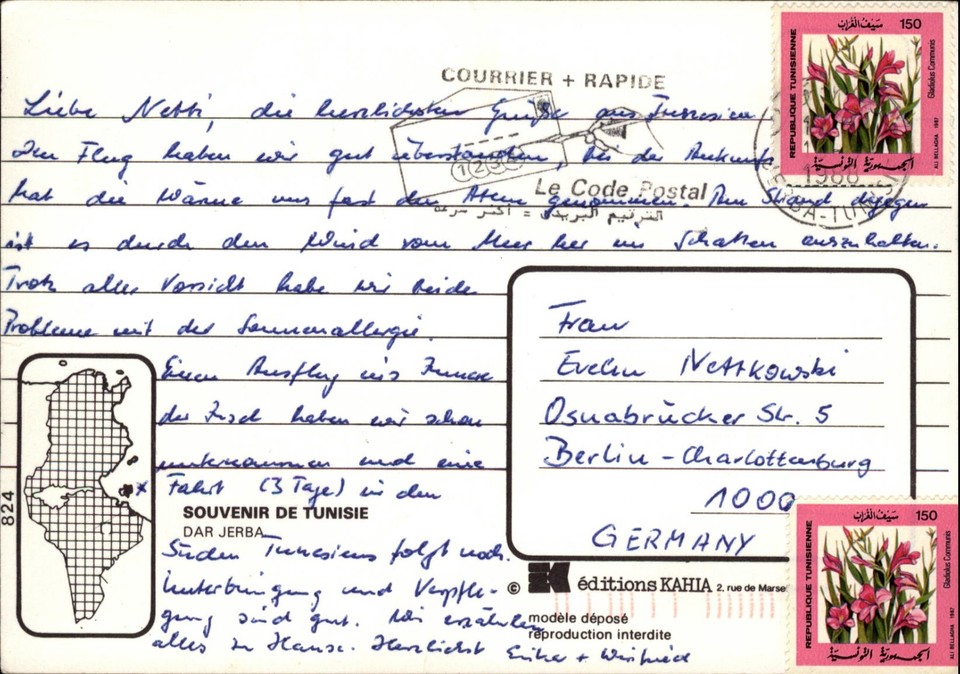 COURRIER + RAPIDE
Le Code Postal
الترقيم البريدي = أكثر سرعة
1 2
Liebe Netti, die herzlichsten Grüße aus Tunesien
Den Flug haben wir gut überstanden, bei der Ankunft
hat die Wärme uns fast den Atem genommen. Am Strand dagegen
ist es durch den Wind vom Meer her im Schatten auszuhalten.
Trotz aller Vorsicht habe wir beide
Probleme mit der Sonnenallergie.
Einen Ausflug ins Innere
der Insel haben wir schon
unternommen und eine
Fahrt (3 Tage) in den
SOUVENIR DE TUNISIE
DAR JERBA
Süden Tunesiens folgt noch.
Unterbringung und Verpfle-
gung sind gut. Wir erzählen
alles zu Hause. Herzlichst Erika + Winfried
Frau
Evelin Nettkowski
Osnabrücker Str. 5
Berlin-Charlottenburg
1000
GERMANY
© éditions KAHIA 2, rue de Marse
modèle déposé
reproduction interdite
824
سيف الغراب 150
REPUBLIQUE TUNISIENNE
Gladiolus Communis
ALI BELLAGHA 1987
الجمهورية التونسية
1988
سيف الغراب 150
REPUBLIQUE TUNISIENNE
Gladiolus Communis
ALI BELLAGHA 1987
الجمهورية التونسية